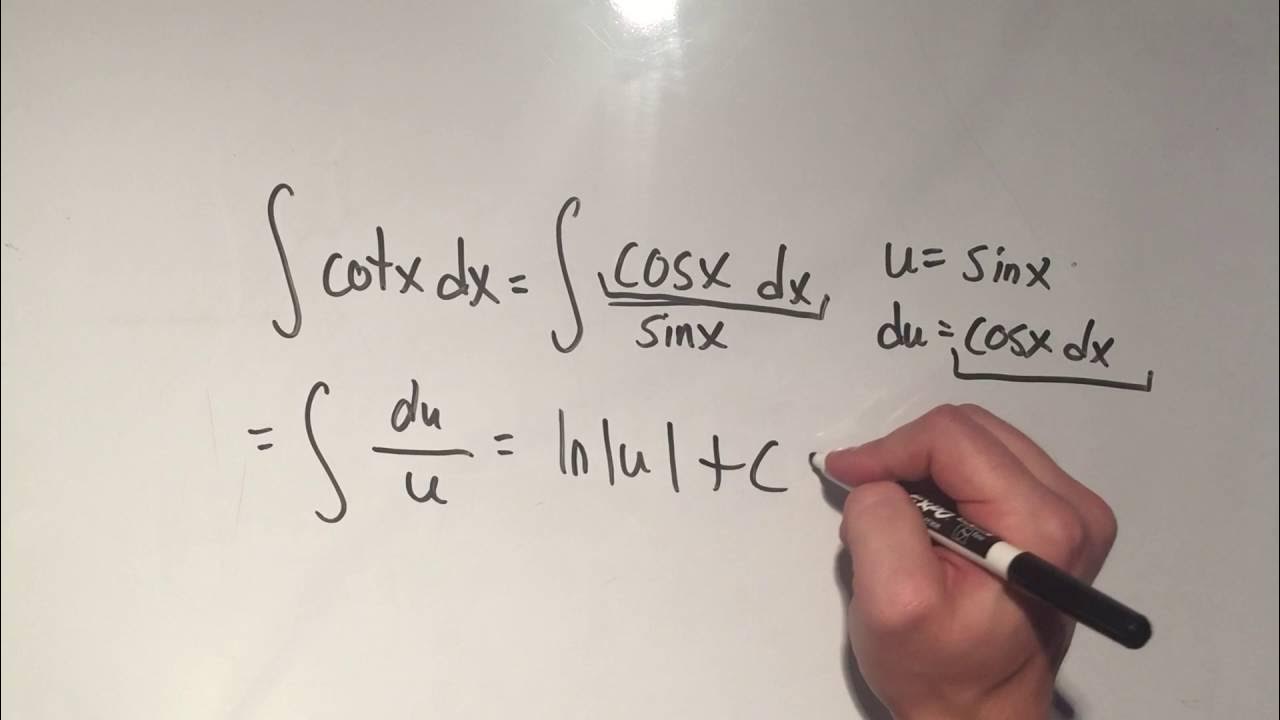 ∫ cotx dx = ∫ cosx dx / sinx
u = sinx
du = cosx dx
= ∫ du / u = ln|u| + C
EXPO